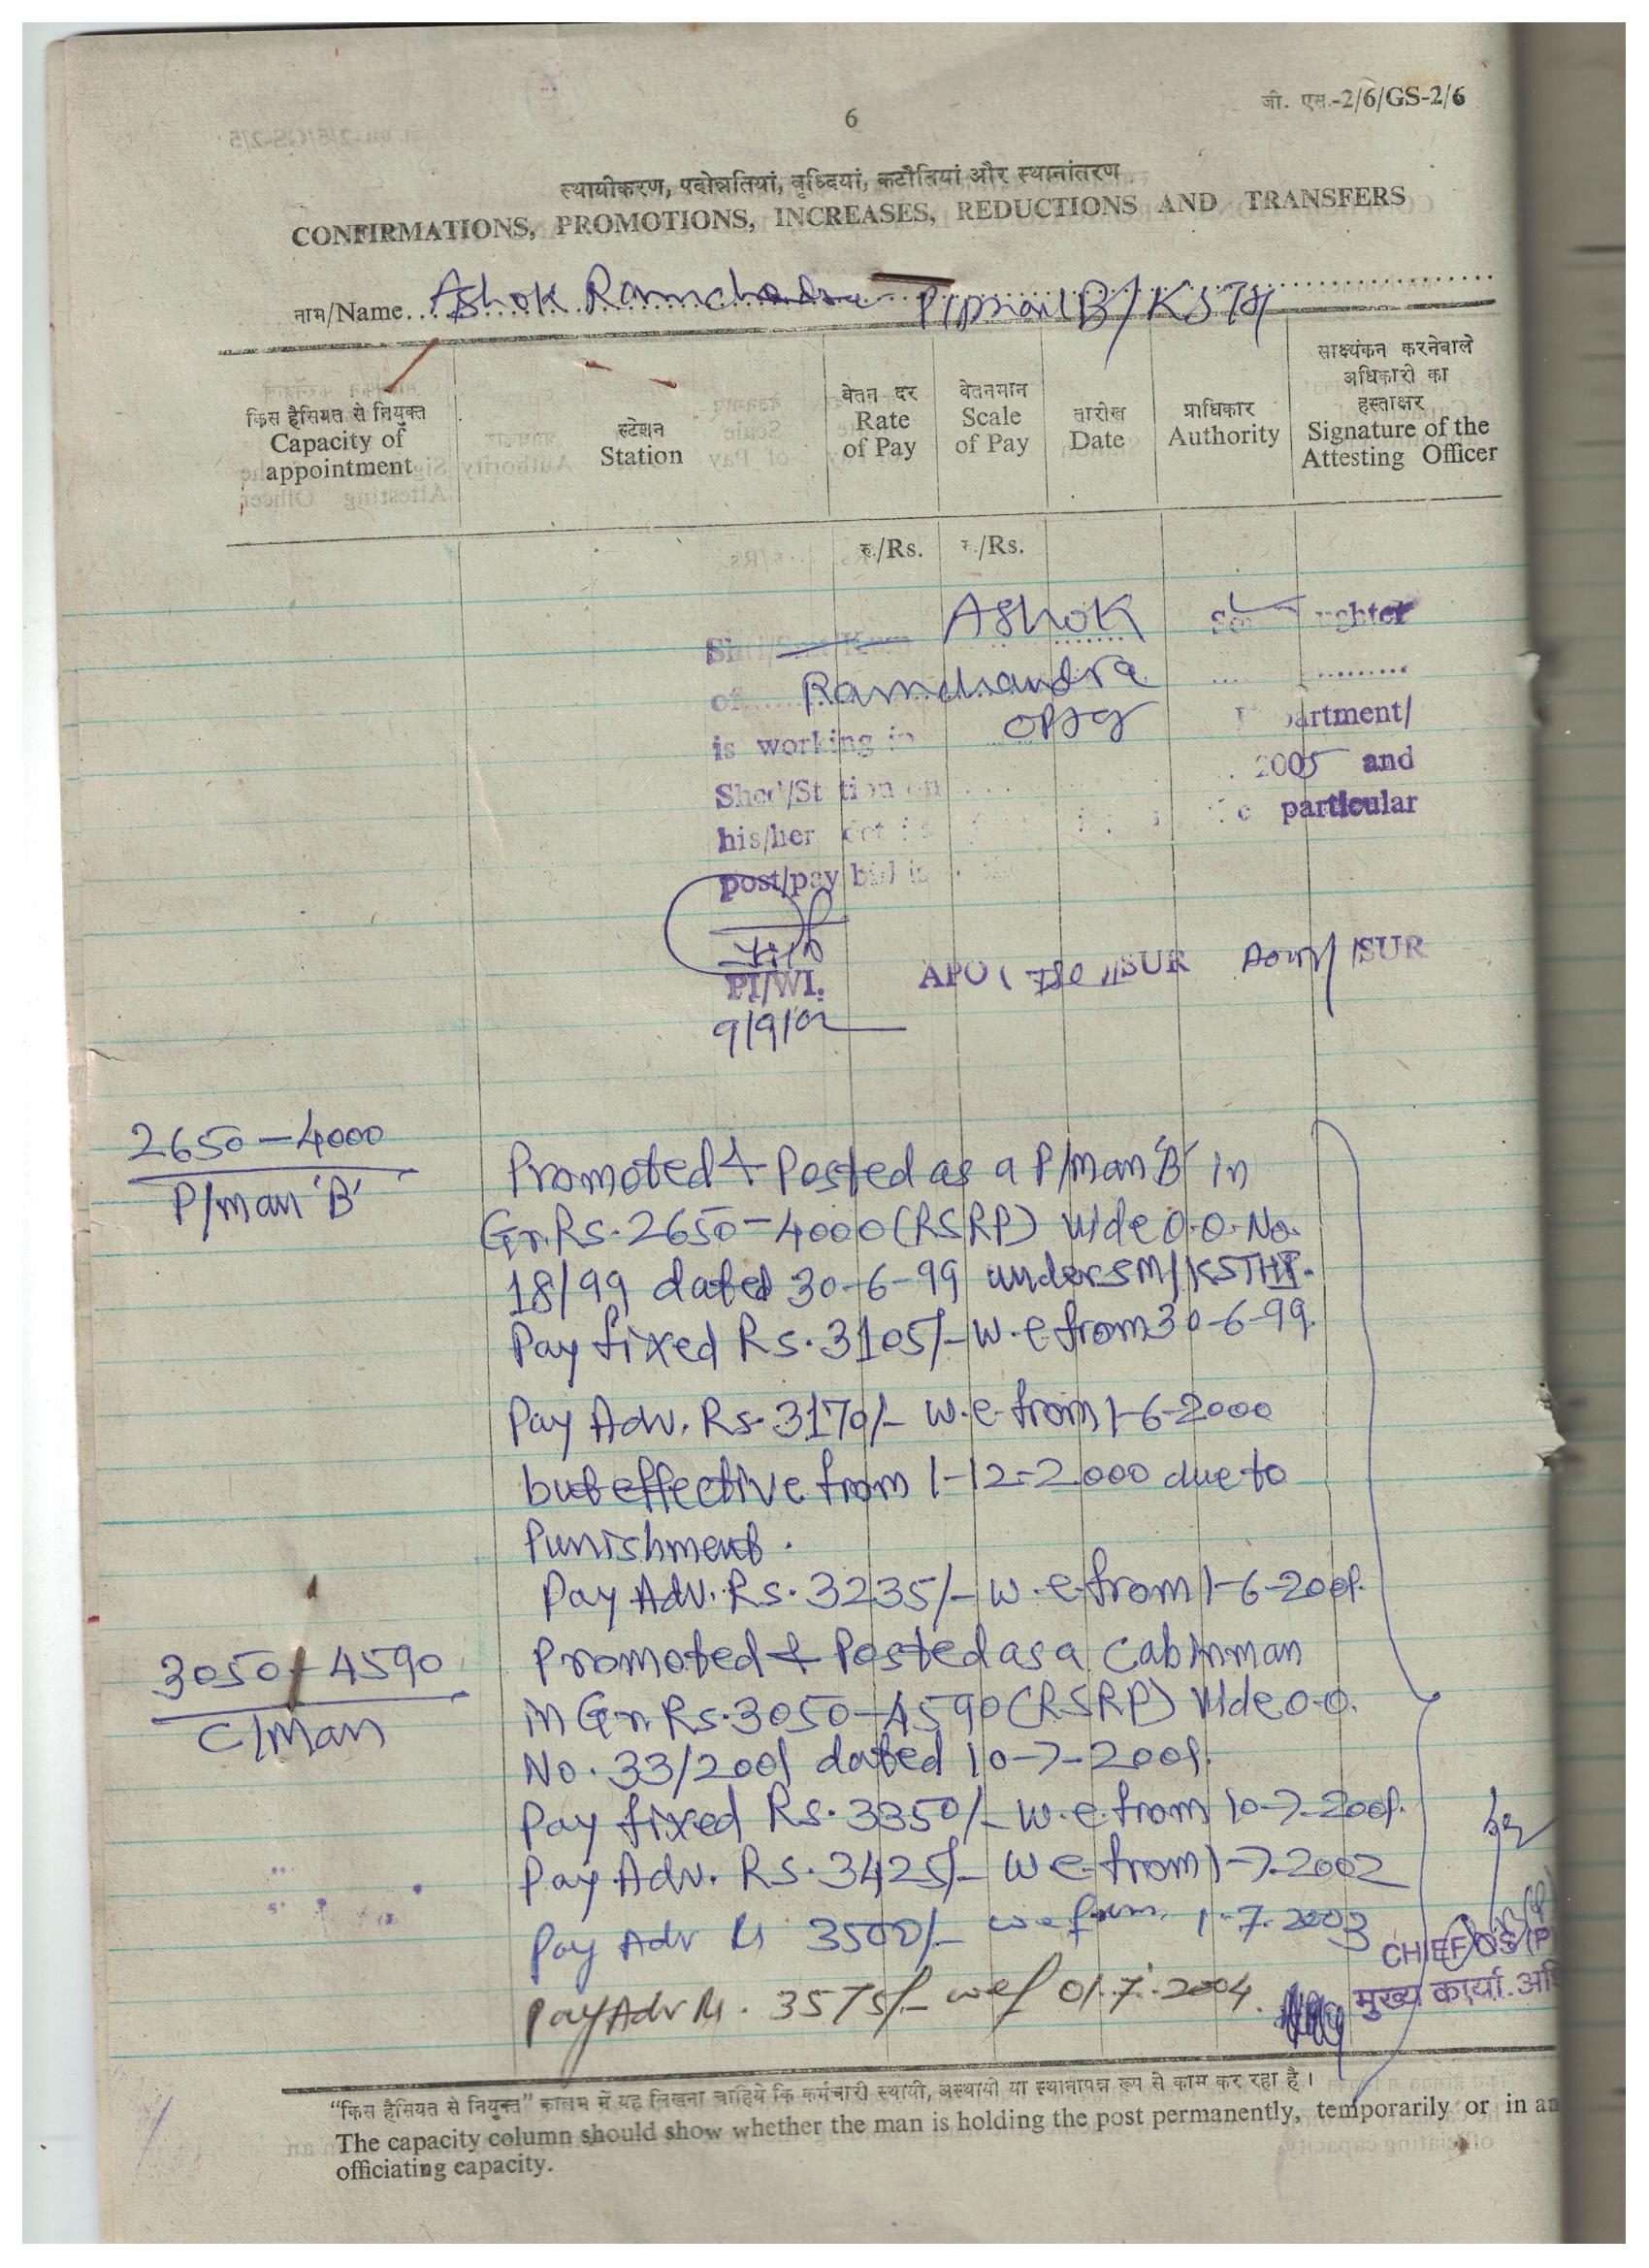 6
जी. एस.-2/6/GS-2/6
स्थायीकरण, पदोन्नतियां, वृध्दियां, कटौतियां और स्थानांतरण
CONFIRMATIONS, PROMOTIONS, INCREASES, REDUCTIONS AND TRANSFERS
नाम/Name Ashok Ramchandra P/man B/KSTH
किस हैसियत से नियुक्त
Capacity of
appointment
स्टेशन
Station
वेतन दर
Rate
of Pay
वेतनमान
Scale
of Pay
तारीख
Date
प्राधिकार
Authority
साक्ष्यंकन करनेवाले
अधिकारी का
हस्ताक्षर
Signature of the
Attesting Officer
रु./Rs.
रु./Rs.
Ashok
of Ramchandra
is working in OPTG Department/
Shed/Station on 2005 and
his/her particular
post/pay bill is
PI/WI.
9/9/02
APO ( ) /SUR /SUR
2650-4000
P/man 'B'
Promoted & Posted as a P/man 'B' in
Gr. Rs. 2650-4000 (RSRP) vide O.O. No.
18/99 dated 30-6-99 under SM/KSTH.
Pay fixed Rs. 3105/- w.e. from 30-6-99.
Pay Adv. Rs. 3170/- w.e. from 1-6-2000
but effective from 1-12-2000 due to
Punishment.
Pay Adv. Rs. 3235/- w.e. from 1-6-2001.
3050-4590
C/Man
Promoted & Posted as a Cabinman
in Gr. Rs. 3050-4590 (RSRP) vide O.O.
No. 33/2001 dated 10-7-2001.
Pay fixed Rs. 3350/- w.e. from 10-7-2001.
Pay Adv. Rs. 3425/- w e from 1-7-2002
Pay Adv Rs 3500/- w e from 1-7-2003
Pay Adv Rs. 3575/- wef 01.7.2004.
CHIEF OS (P
मुख्य कार्या. अधि
“किस हैसियत से नियुक्त” कालम में यह लिखना चाहिये कि कर्मचारी स्थायी, अस्थायी या स्थानापन्न रूप से काम कर रहा है ।
The capacity column should show whether the man is holding the post permanently, temporarily or in an
officiating capacity.